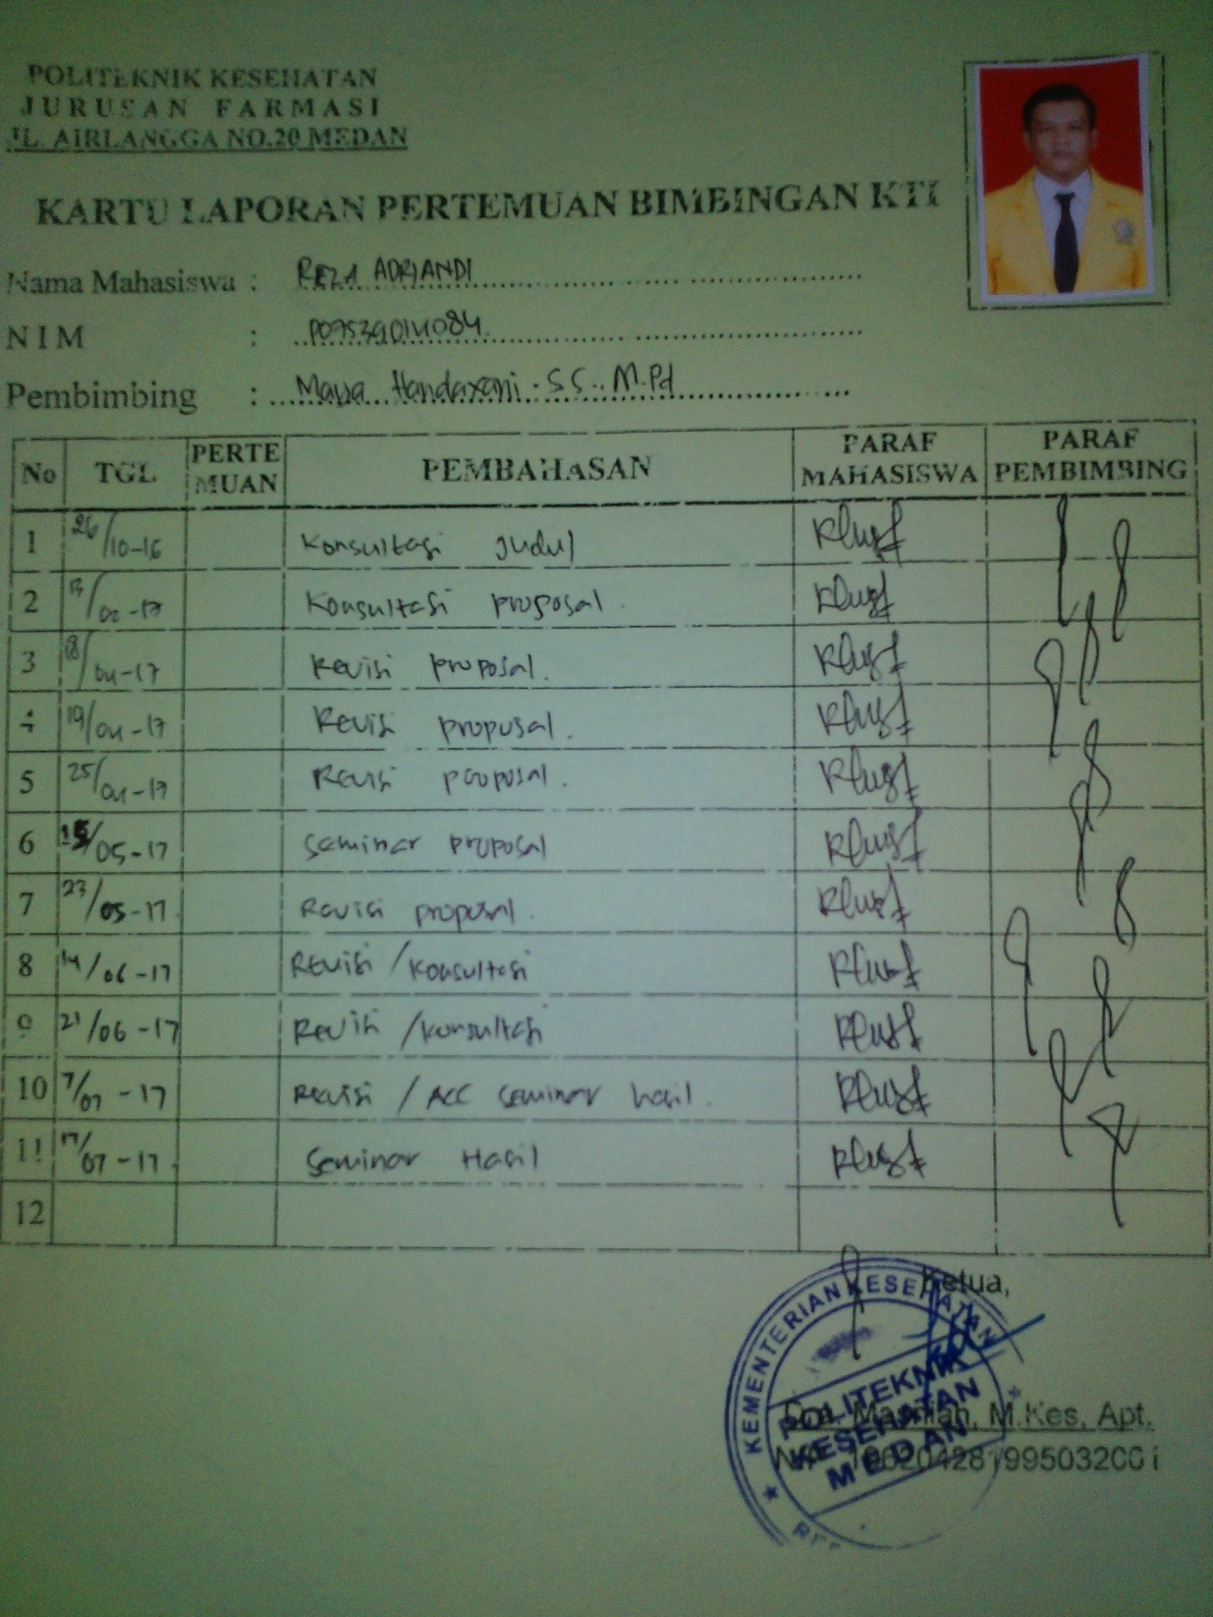 POLITEKNIK KESEHATAN
JURUSAN FARMASI
JL. AIRLANGGA NO.20 MEDAN
KARTU LAPORAN PERTEMUAN BIMBINGAN KTI
Nama Mahasiswa : REZA ADRIANDI
NIM : P07539014084
Pembimbing : Maya Handayani . SS., M.Pd
No TGL PERTE MUAN PEMBAHASAN PARAF MAHASISWA PARAF PEMBIMBING
1 26/10-16 Konsultasi Judul
2 /02-17 Konsultasi proposal.
3 18/04-17 Revisi proposal.
4 19/04-17 Revisi proposal.
5 25/04-17 Revisi proposal.
6 15/05-17 Seminar proposal
7 23/05-17 Revisi proposal.
8 14/06-17 Revisi / Konsultasi
9 21/06-17 Revisi / Konsultasi
10 7/07-17 Revisi / ACC Seminar hasil.
11 17/07-17 Seminar Hasil
12
Ketua,
Dra. Masniah, M.Kes, Apt.
NIP. 196204281995032001
KEMENTERIAN KESEHATAN
POLITEKNIK
KESEHATAN
MEDAN